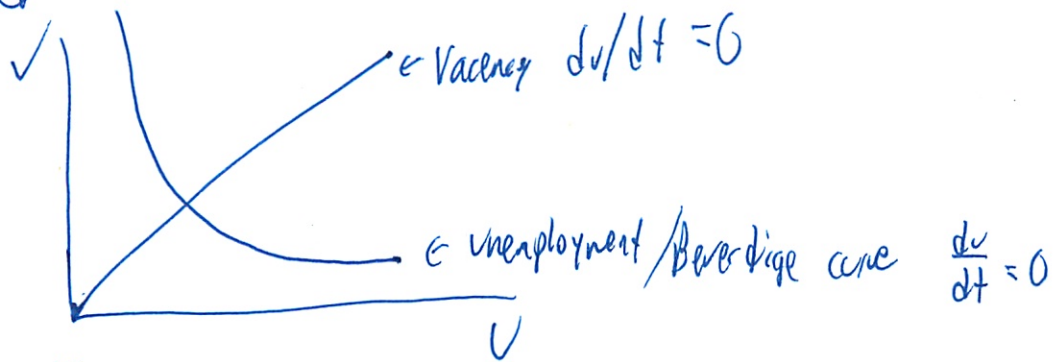 V
← Vacency dv/dt = 0
← Unemployment/Beverdige curve du/dt = 0
U